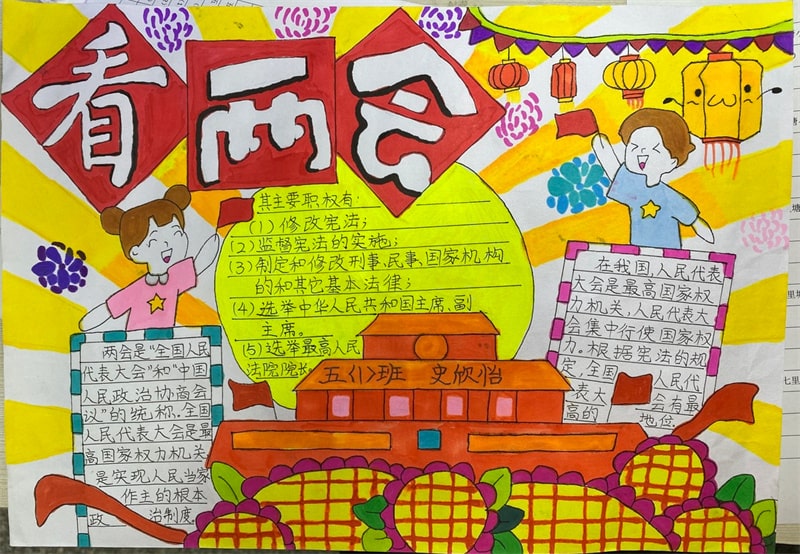 看两会
其主要职权有:
(1)修改宪法;
(2)监督宪法的实施;
(3)制定和修改刑事、民事、国家机构
的和其它基本法律;
(4)选举中华人民共和国主席、副
主席。
(5)选举最高人民
法院院长
五(1)班 史欣怡
两会是“全国人民
代表大会”和“中国
人民政治协商会
议”的统称。全国
人民代表大会是最
高国家权力机关。
是实现人民当家
作主的根本
政治制度
在我国,人民代表
大会是最高国家权
力机关,人民代表大
会集中行使国家权
力。根据宪法的规
定,全国人民代
表大会有最
高的地位